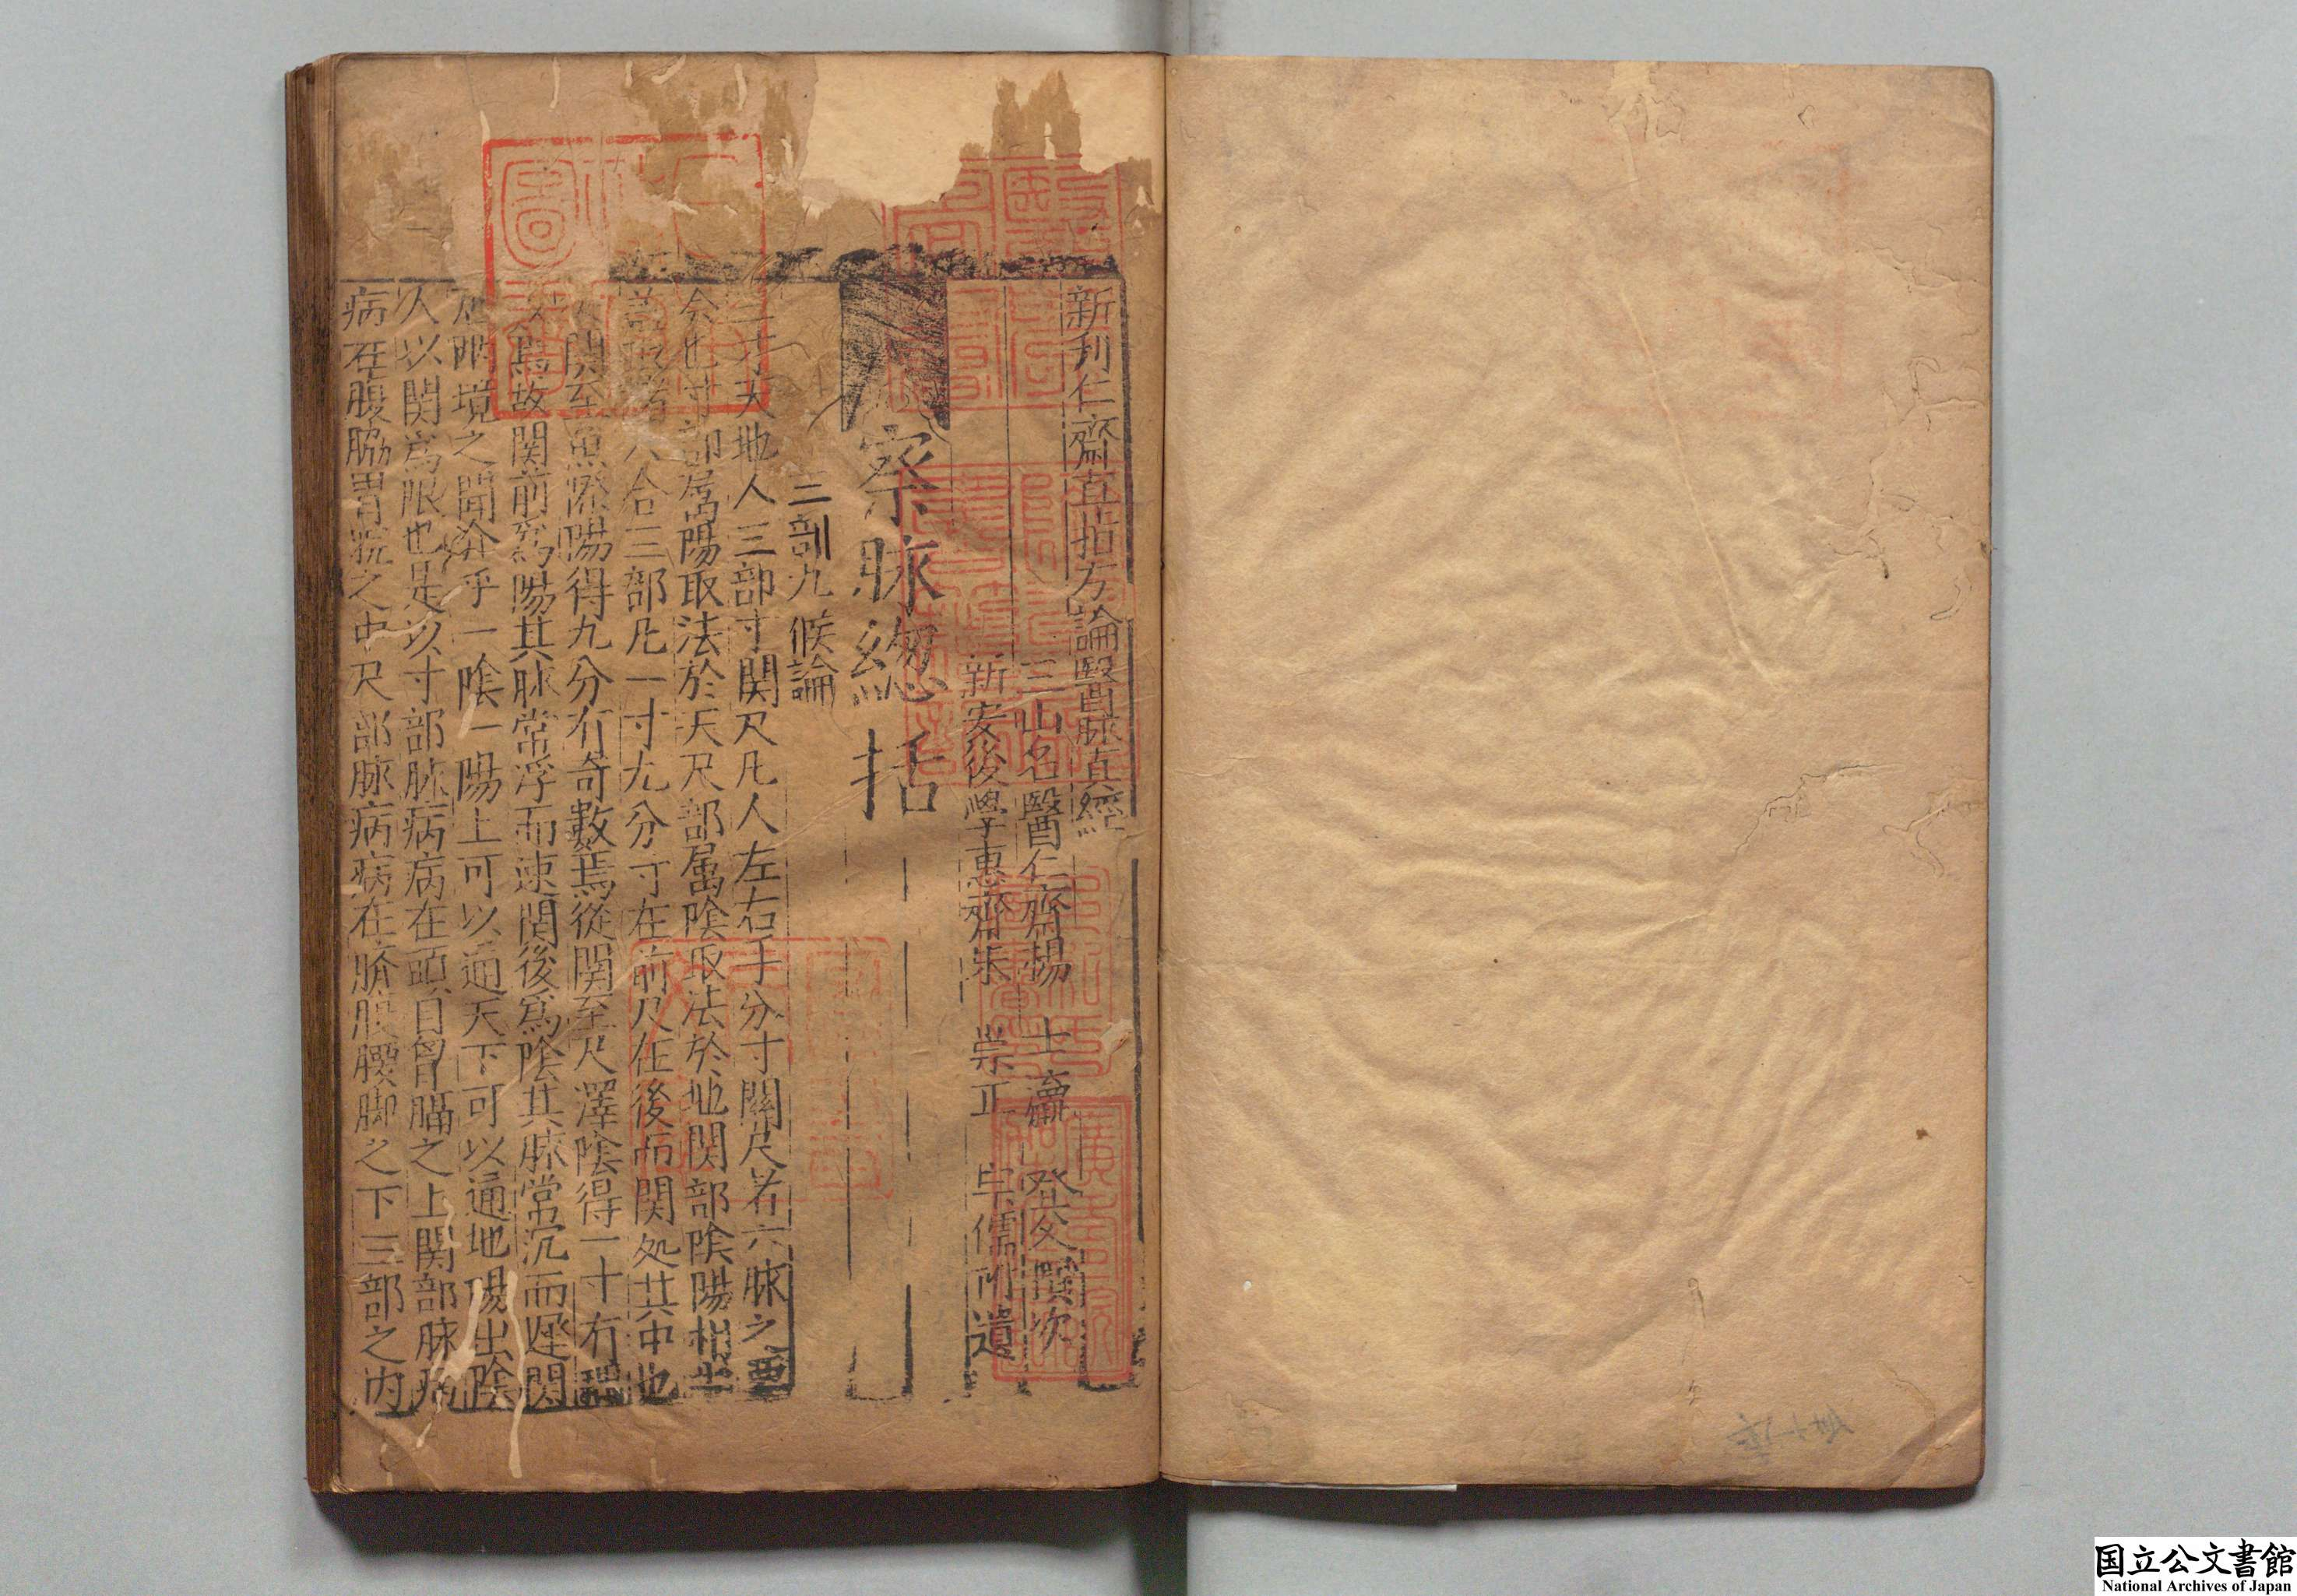 新刋仁齋直指方論醫脉真經
三山名醫仁齋楊 士瀛 登父 撰次
新安後學惠齋朱 崇正 宗儒 附遺
察脉緫括
三部九候論
三才天地人三部寸関尺凡人左右手分寸關尺若六脉之要
会也寸部属陽取法於天尺部属陰取法於地関部陰陽相半
合三部凡一寸九分寸在前尺在後而関处其中也
関至魚際陽得九分有奇數焉從関至尺澤陰得一寸有
焉故関前爲陽其脉常浮而速関後爲陰其脉常沉而遲関
境之間分乎一陰一陽上可以通天下可以通地陽出陰
人以関爲限也是以寸部脉病病在頭目胷膈之上関部脉病
病在腹脇胃脘之中尺部脉病病在臍腹腰脚之下三部之内
圖
書
国立公文書館
National Archives of Japan